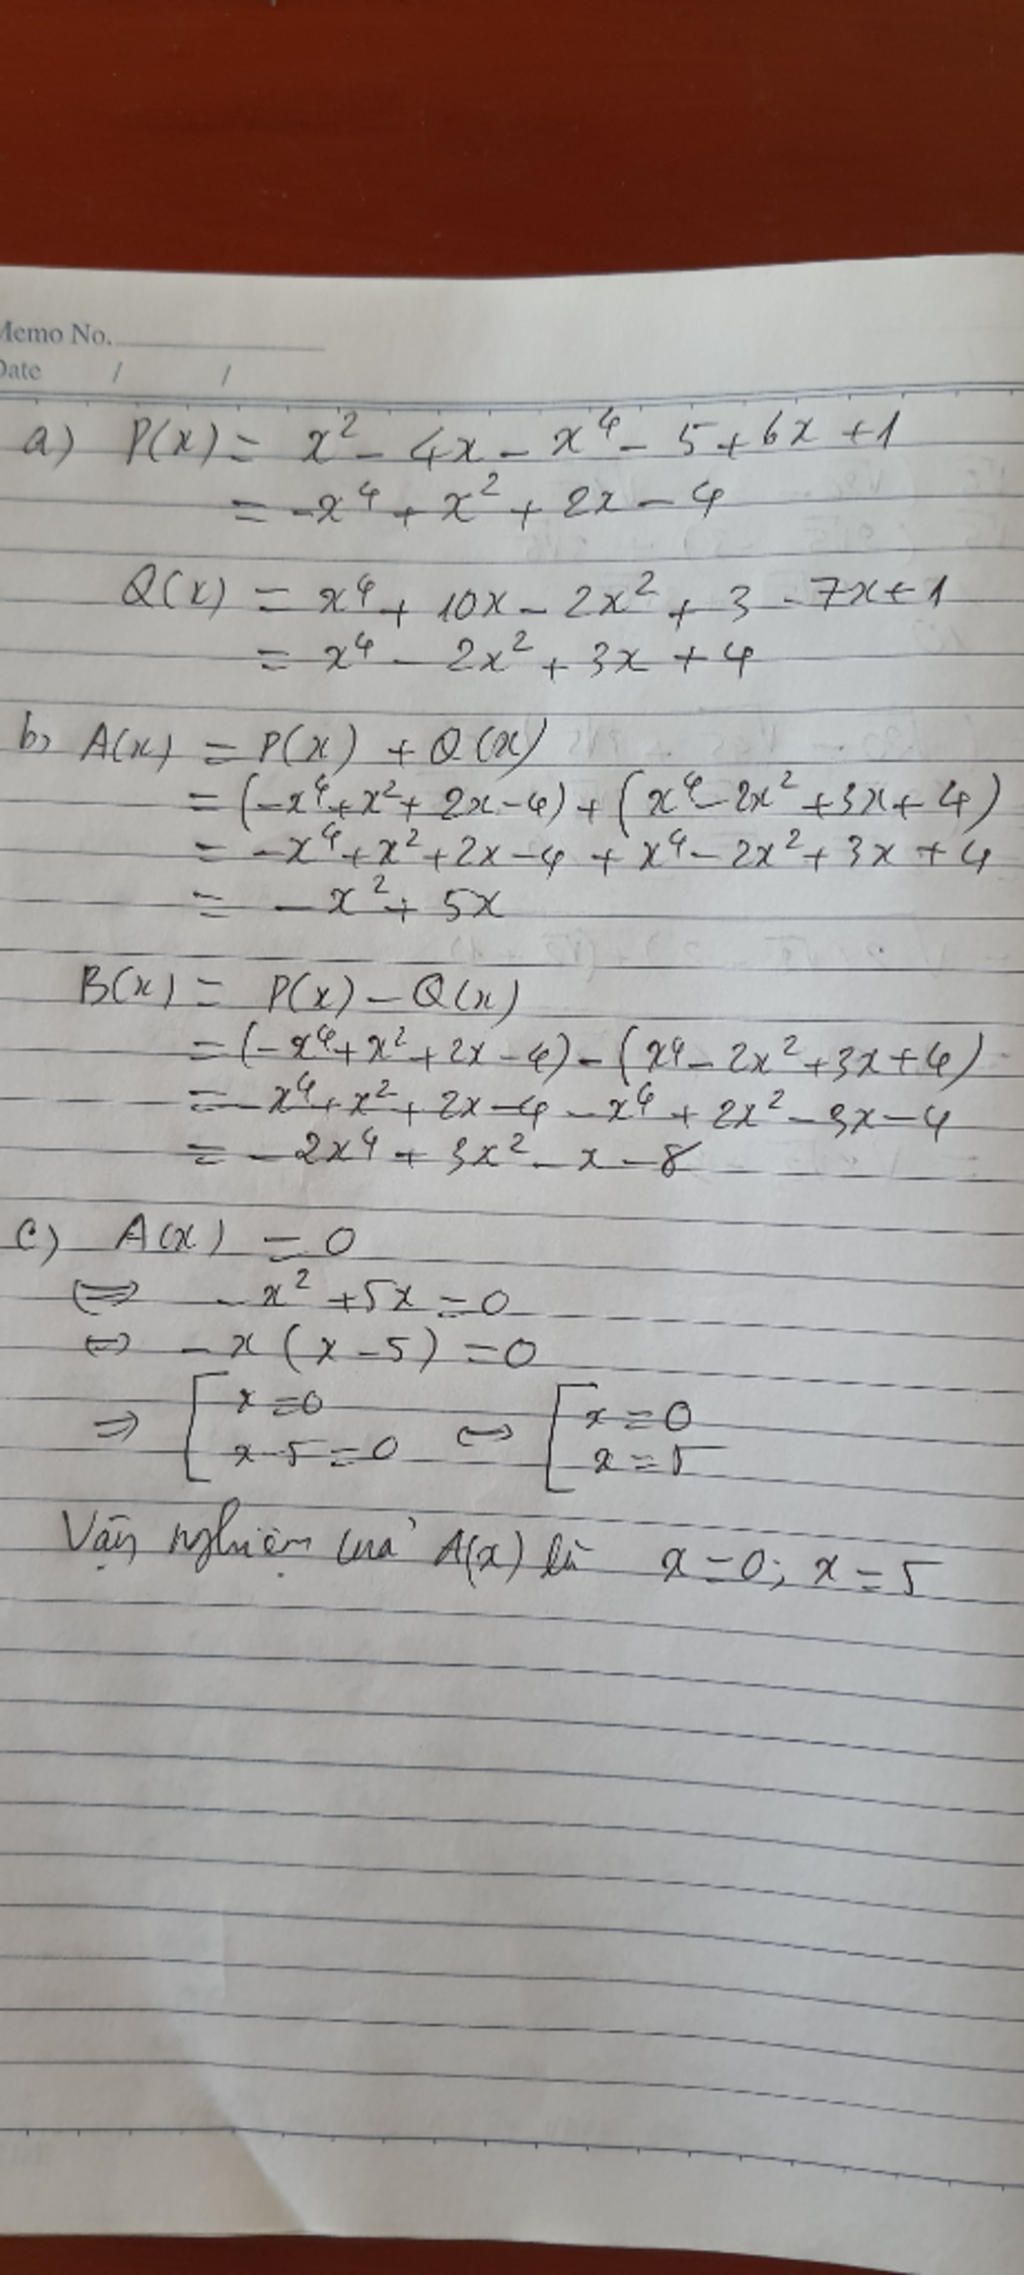 Memo No.
Date / /
a) P(x) = x² - 4x - x⁴ - 5 + 6x + 1
= -x⁴ + x² + 2x - 4
Q(x) = x⁴ + 10x - 2x² + 3 - 7x + 1
= x⁴ - 2x² + 3x + 4
b) A(x) = P(x) + Q(x)
= (-x⁴ + x² + 2x - 4) + (x⁴ - 2x² + 3x + 4)
= -x⁴ + x² + 2x - 4 + x⁴ - 2x² + 3x + 4
= -x² + 5x
B(x) = P(x) - Q(x)
= (-x⁴ + x² + 2x - 4) - (x⁴ - 2x² + 3x + 4)
= -x⁴ + x² + 2x - 4 - x⁴ + 2x² - 3x - 4
= -2x⁴ + 3x² - x - 8
c) A(x) = 0
⇔ -x² + 5x = 0
⇔ -x(x - 5) = 0
⇒ [ x = 0 ⇔ [ x = 0
x - 5 = 0 x = 5
Vậy nghiệm của A(x) là x = 0; x = 5